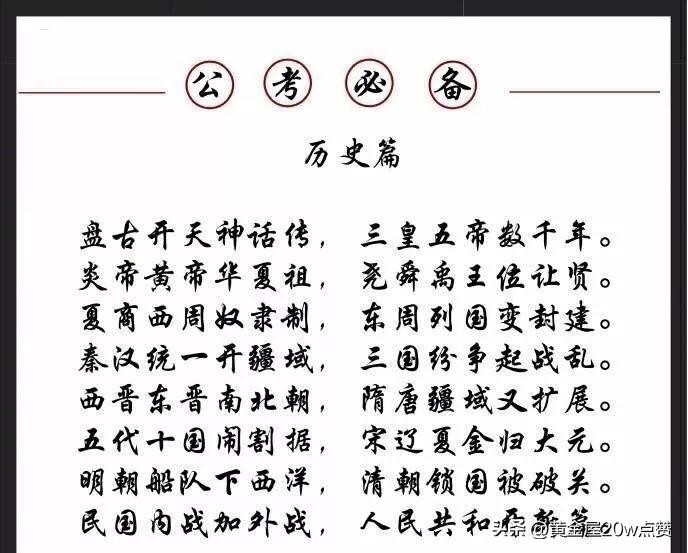 公考必备
历史篇
盘古开天神话传，三皇五帝数千年。
炎帝黄帝华夏祖，尧舜禹王位让贤。
夏商西周奴隶制，东周列国变封建。
秦汉统一开疆域，三国纷争起战乱。
西晋东晋南北朝，隋唐疆域又扩展。
五代十国闹割据，宋辽夏金归大元。
明朝船队下西洋，清朝锁国被破关。
民国内战加外战，人民共和
头条 @黄金屋20w点赞